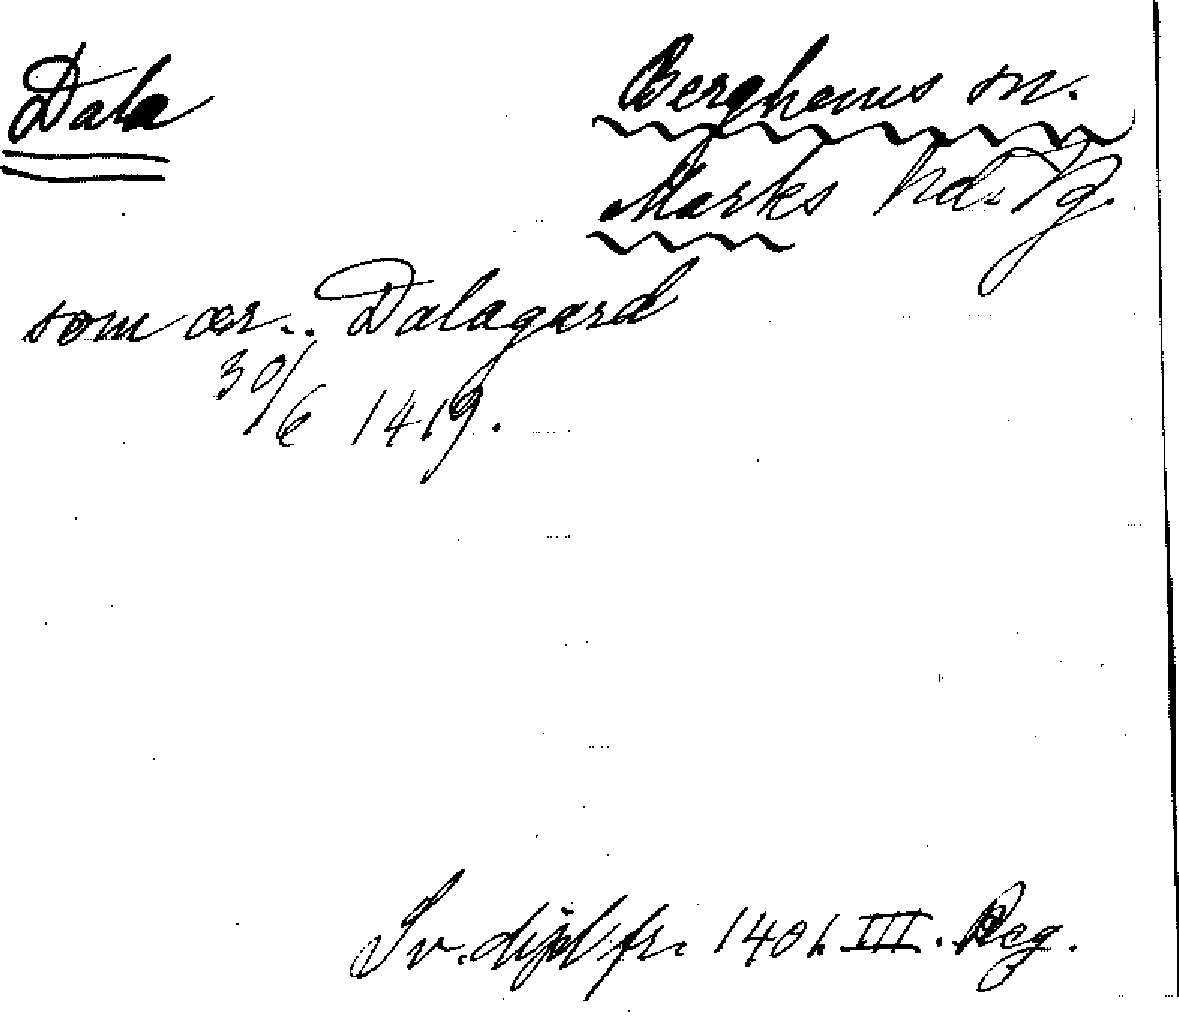 Dala
Berghems sn.
Marks hd. Vg.
som ær.. Dalagard
30/6 1419.
Sv. dipl fr. 1401. III. Reg.